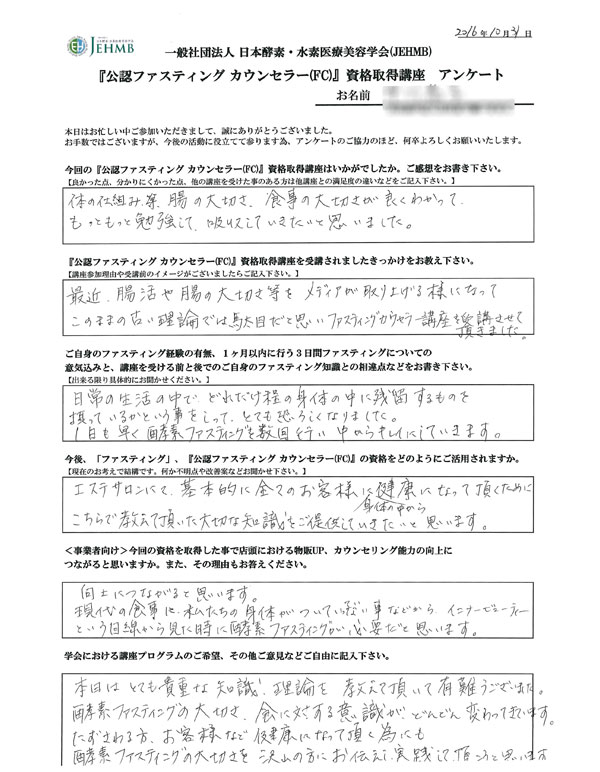 2016年10月31日
JEHMB
一般社団法人 日本酵素・水素医療美容学会(JEHMB)
『公認ファスティング カウンセラー(FC)』資格取得講座 アンケート
お名前
本日はお忙しい中ご参加いただきまして、誠にありがとうございました。
お手数ではございますが、今後の活動に役立てて参ります為、アンケートのご協力のほど、何卒よろしくお願いいたします。
今回の『公認ファスティング カウンセラー(FC)』資格取得講座はいかがでしたか。ご感想をお書き下さい。
【良かった点、分かりにくかった点、他の講座を受けた事のある方は他講座との満足度の違いなどをご記入下さい。】
体の仕組み等、腸の大切さ、食事の大切さが良くわかって、
もっともっと勉強して、吸収していきたいと思いました。
『公認ファスティング カウンセラー(FC)』資格取得講座を受講されましたきっかけをお教え下さい。
【講座参加理由や受講前のイメージがございましたらご記入下さい。】
最近、腸活や腸の大切さ等をメディアが取り上げる様になって
このままの古い理論では駄目だと思いファスティングカウンセラー講座を受講させて
頂きました。
ご自身のファスティング経験の有無、1ヶ月以内に行う3日間ファスティングについての
意気込みと、講座を受ける前と後でのご自身のファスティング知識との相違点などをお書き下さい。
【出来る限り具体的にお聞かせください。】
日常の生活の中で、どれだけ程の身体の中に残留するものを
摂っているかという事をしって、とても恐ろしくなりました。
1日も早く酵素ファスティングを数回行い中からキレイにしていきます。
今後、「ファスティング」、『公認ファスティング カウンセラー(FC)』の資格をどのようにご活用されますか。
【現在のお考えで結構です。何か不明点や改善案などお聞かせ下さい。】
エステサロンにて、基本的に全てのお客様に健康になって頂くために
身体の中から
こちらで教えて頂いた大切な知識をご提供していきたいと思います。
<事業者向け>今回の資格を取得した事で店頭における物販UP、カウンセリング能力の向上に
つながると思いますか。また、その理由もお答えください。
向上につながると思います。
現代の食事に、私たちの身体がついていってない事などから、インナービューティー
という目線から見た時に酵素ファスティングが必要だと思います。
学会における講座プログラムのご希望、その他ご意見などご自由に記入下さい。
本日はとても貴重な知識、理論を教えて頂いて有難うございました。
酵素ファスティングの大切さ、食に対する意識が、どんどん変わってきています。
たずさわる方、お客様など健康になって頂く為にも
酵素ファスティングの大切さを沢山の方にお伝え、実践して頂こうと思います